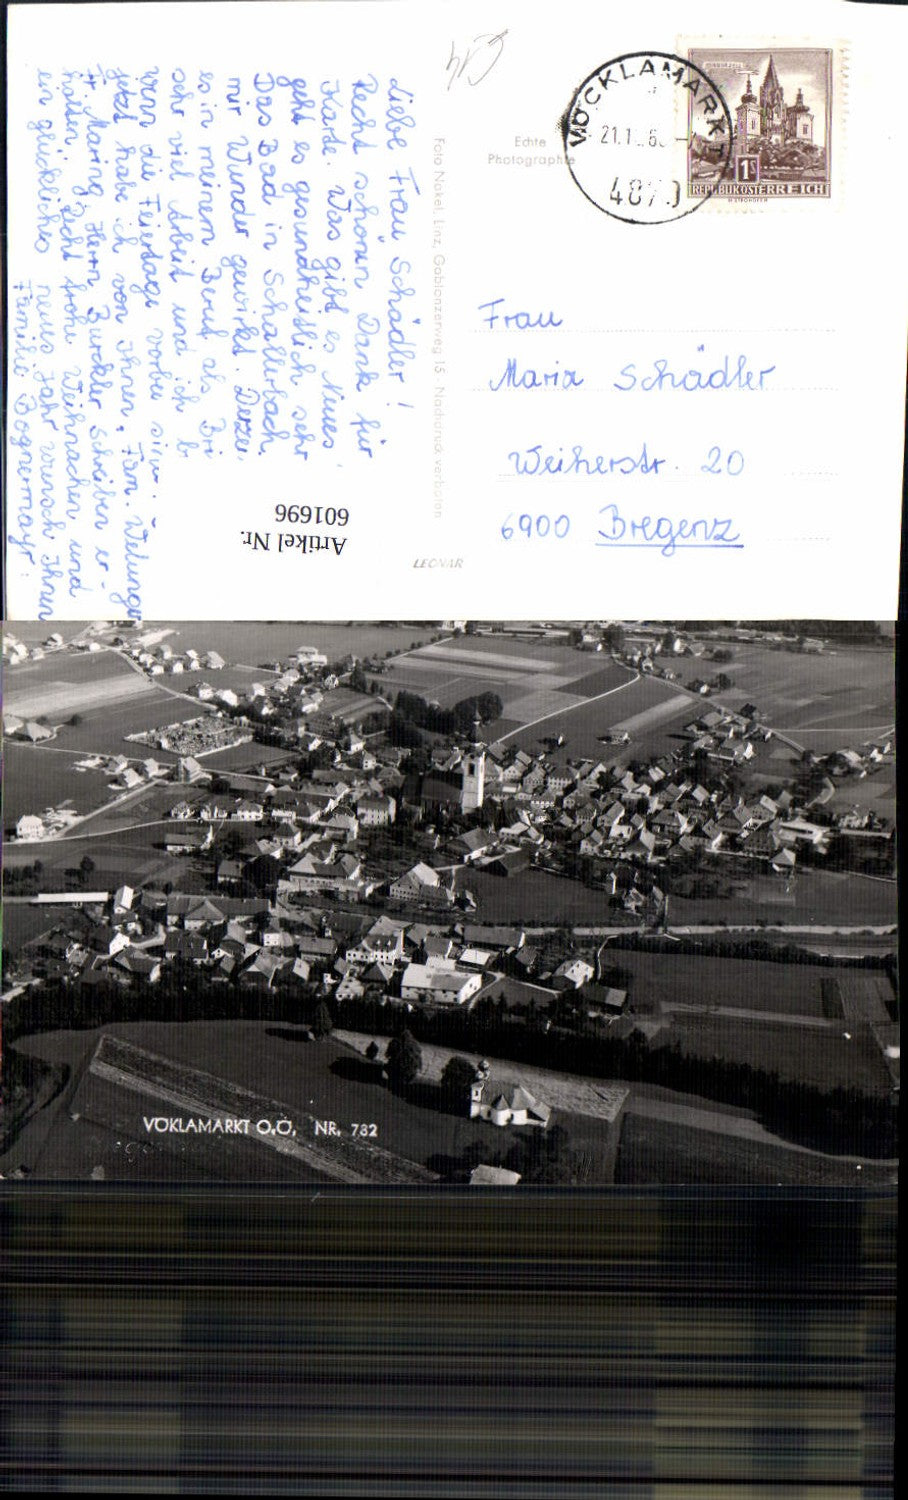 Liebe Frau Schädler!
Recht schönen Dank für
Karte. Was gibt es Neues,
geht es gesundheitlich sehr
Das Bad in Schallerbach
mir Wunder gewirkt. Derzei
es in meinem Beruf als Bri
sehr viel Arbeit und ich b
wenn die Feiertage vorbei sin
jetzt habe ich von Ihnen, Fam.
Fr. Maria, Herrn schreiben er-
halten. Recht frohe Weihnachen und
ein glückliches neues Jahr wünsch Ihnen
Familie Bognermayr.
Foto Nakel, Linz, Gablonzerweg 15. Nachdruck verboten
Echte
Photographie
VÖCKLAMARKT
4870
1S
REPUBLIK ÖSTERREICH
Frau
Maria Schädler
Weiherstr. 20
6900 Bregenz
Artikel Nr.
601696
LEONAR
VÖKLAMARKT O.Ö. NR. 782